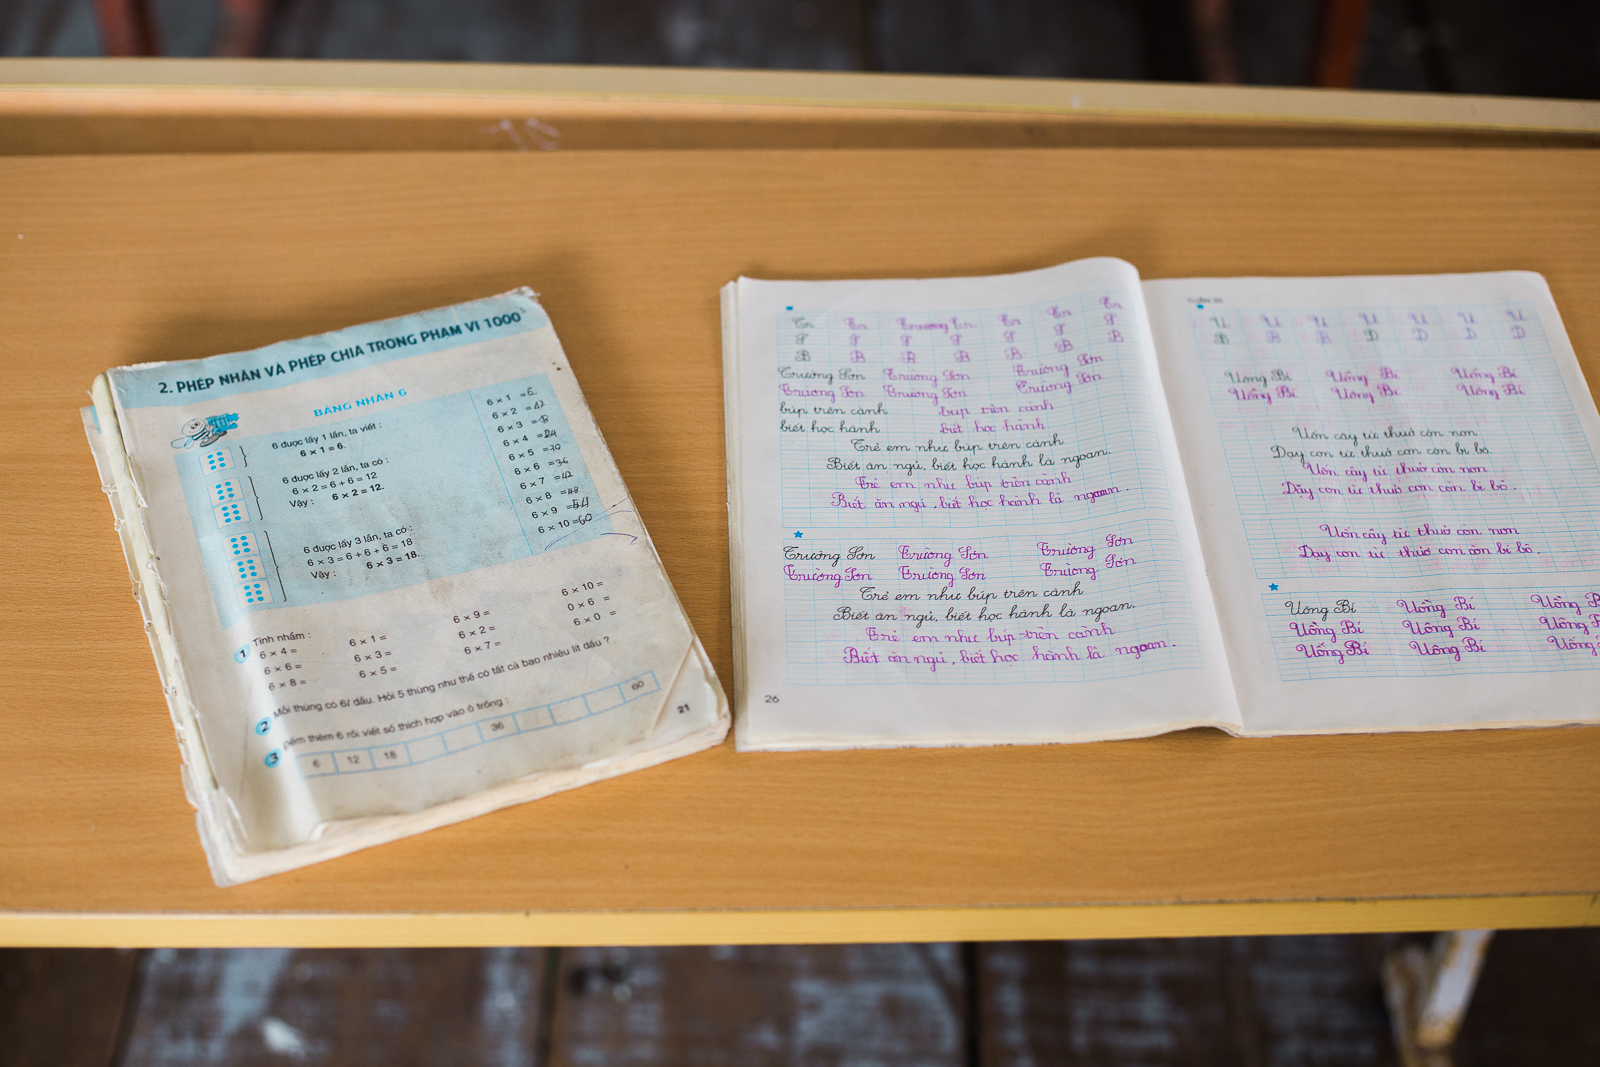 2. PHÉP NHÂN VÀ PHÉP CHIA TRONG PHẠM VI 1000
BẢNG NHÂN 6
6 được lấy 1 lần, ta viết :
6 × 1 = 6.
6 được lấy 2 lần, ta có :
6 × 2 = 6 + 6 = 12
Vậy : 6 × 2 = 12.
6 được lấy 3 lần, ta có :
6 × 3 = 6 + 6 + 6 = 18
Vậy : 6 × 3 = 18.
6 × 1 = 6.
6 × 2 = 12
6 × 3 = 18
6 × 4 = 24
6 × 5 = 30
6 × 6 = 36
6 × 7 = 42
6 × 8 = 48
6 × 9 = 54
6 × 10 = 60
1 Tính nhẩm :
6 × 4 = 6 × 1 = 6 × 9 = 6 × 10 =
6 × 6 = 6 × 3 = 6 × 2 = 0 × 6 =
6 × 8 = 6 × 5 = 6 × 7 = 6 × 0 =
2 Mỗi thùng có 6l dầu. Hỏi 5 thùng như thế có tất cả bao nhiêu lít dầu ?
3 Đếm thêm 6 rồi viết số thích hợp vào ô trống :
6 12 18 36 60
21
Tr Tr Trương Tr Tr Tr Tr
B B B B B B B
Trường Sơn Trường Sơn Trường Sơn
Trường Sơn Trường Sơn Trường Sơn
búp trên cành búp trên cành
biết học hành biết học hành
Trẻ em như búp trên cành
Biết ăn ngủ, biết học hành là ngoan.
Trẻ em như búp trên cành
Biết ăn ngủ, biết học hành là ngoan.
Trường Sơn Trường Sơn Trường Sơn
Trường Sơn Trường Sơn Trường Sơn
Trẻ em như búp trên cành
Biết ăn ngủ, biết học hành là ngoan.
Trẻ em như búp trên cành
Biết ăn ngủ, biết học hành là ngoan.
26
U U U U U U U
Uông Bí Uông Bí Uông Bí
Uông Bí Uông Bí Uông Bí
Uốn cây từ thuở còn non
Dạy con từ thuở con còn bi bô.
Uốn cây từ thuở còn non
Dạy con từ thuở con còn bi bô.
Uốn cây từ thuở còn non
Dạy con từ thuở con còn bi bô.
Uông Bí Uông Bí Uông B
Uông Bí Uông Bí Uông
Uông Bí Uông Bí Uông